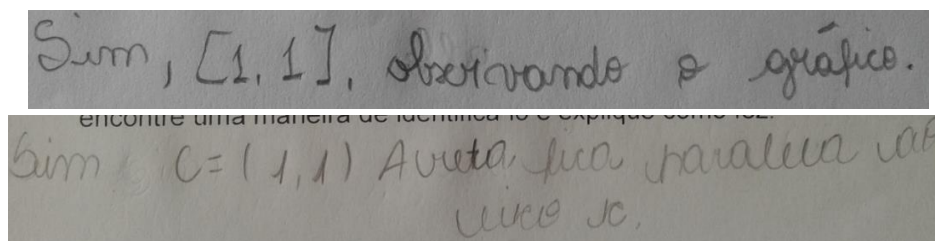 Sim, [1, 1], observando o gráfico.
encontre uma maneira de identificá-lo e explique como fez.
Sim C=(1,1) A reta fica paralela ao
eixo x.